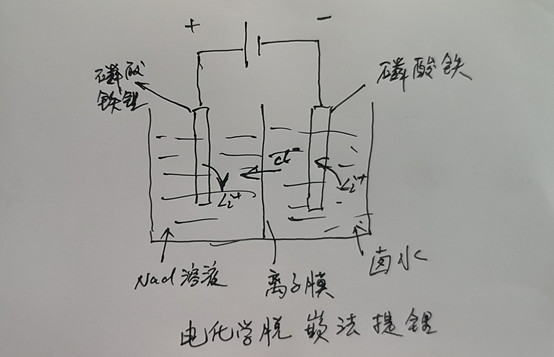 + −
磷酸
铁锂
磷酸铁
Cl⁻
Li⁺
Li⁺
NaCl溶液
离子膜
卤水
电化学脱嵌法提锂